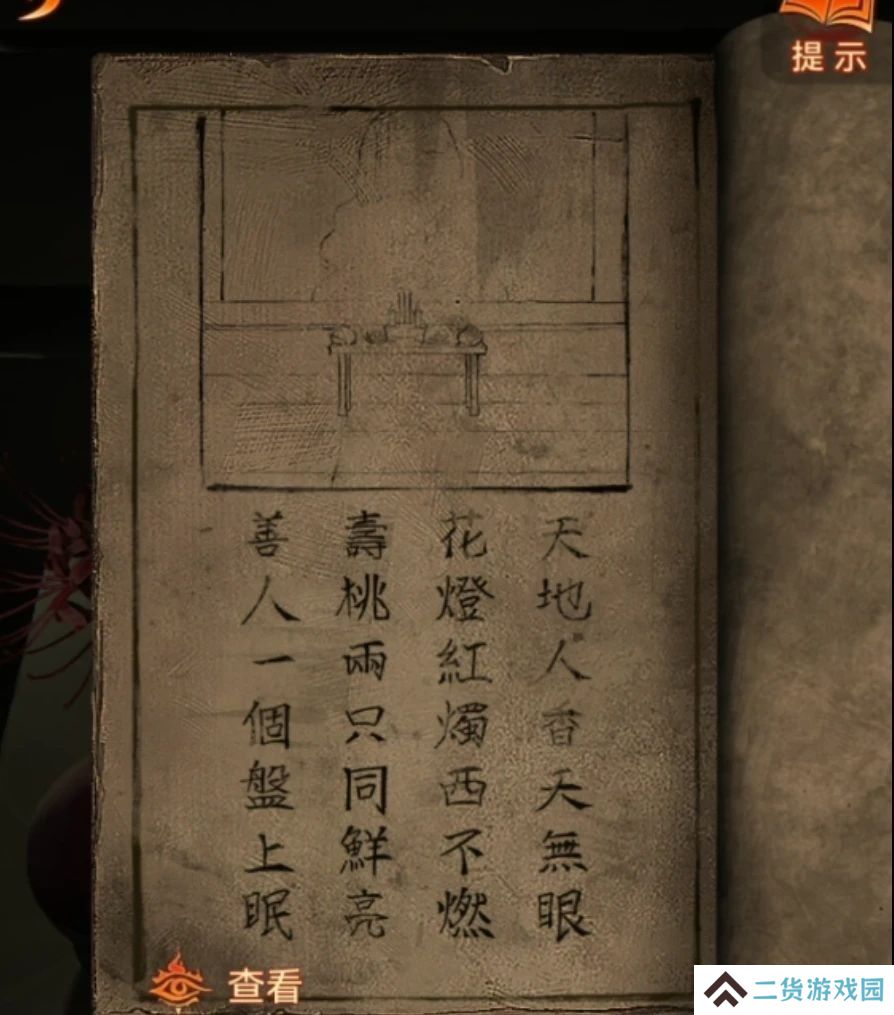 提示
天地人香天無眼
花燈紅燭西不燃
壽桃兩只同鮮亮
善人一個盤上眠
查看
二货游戏园